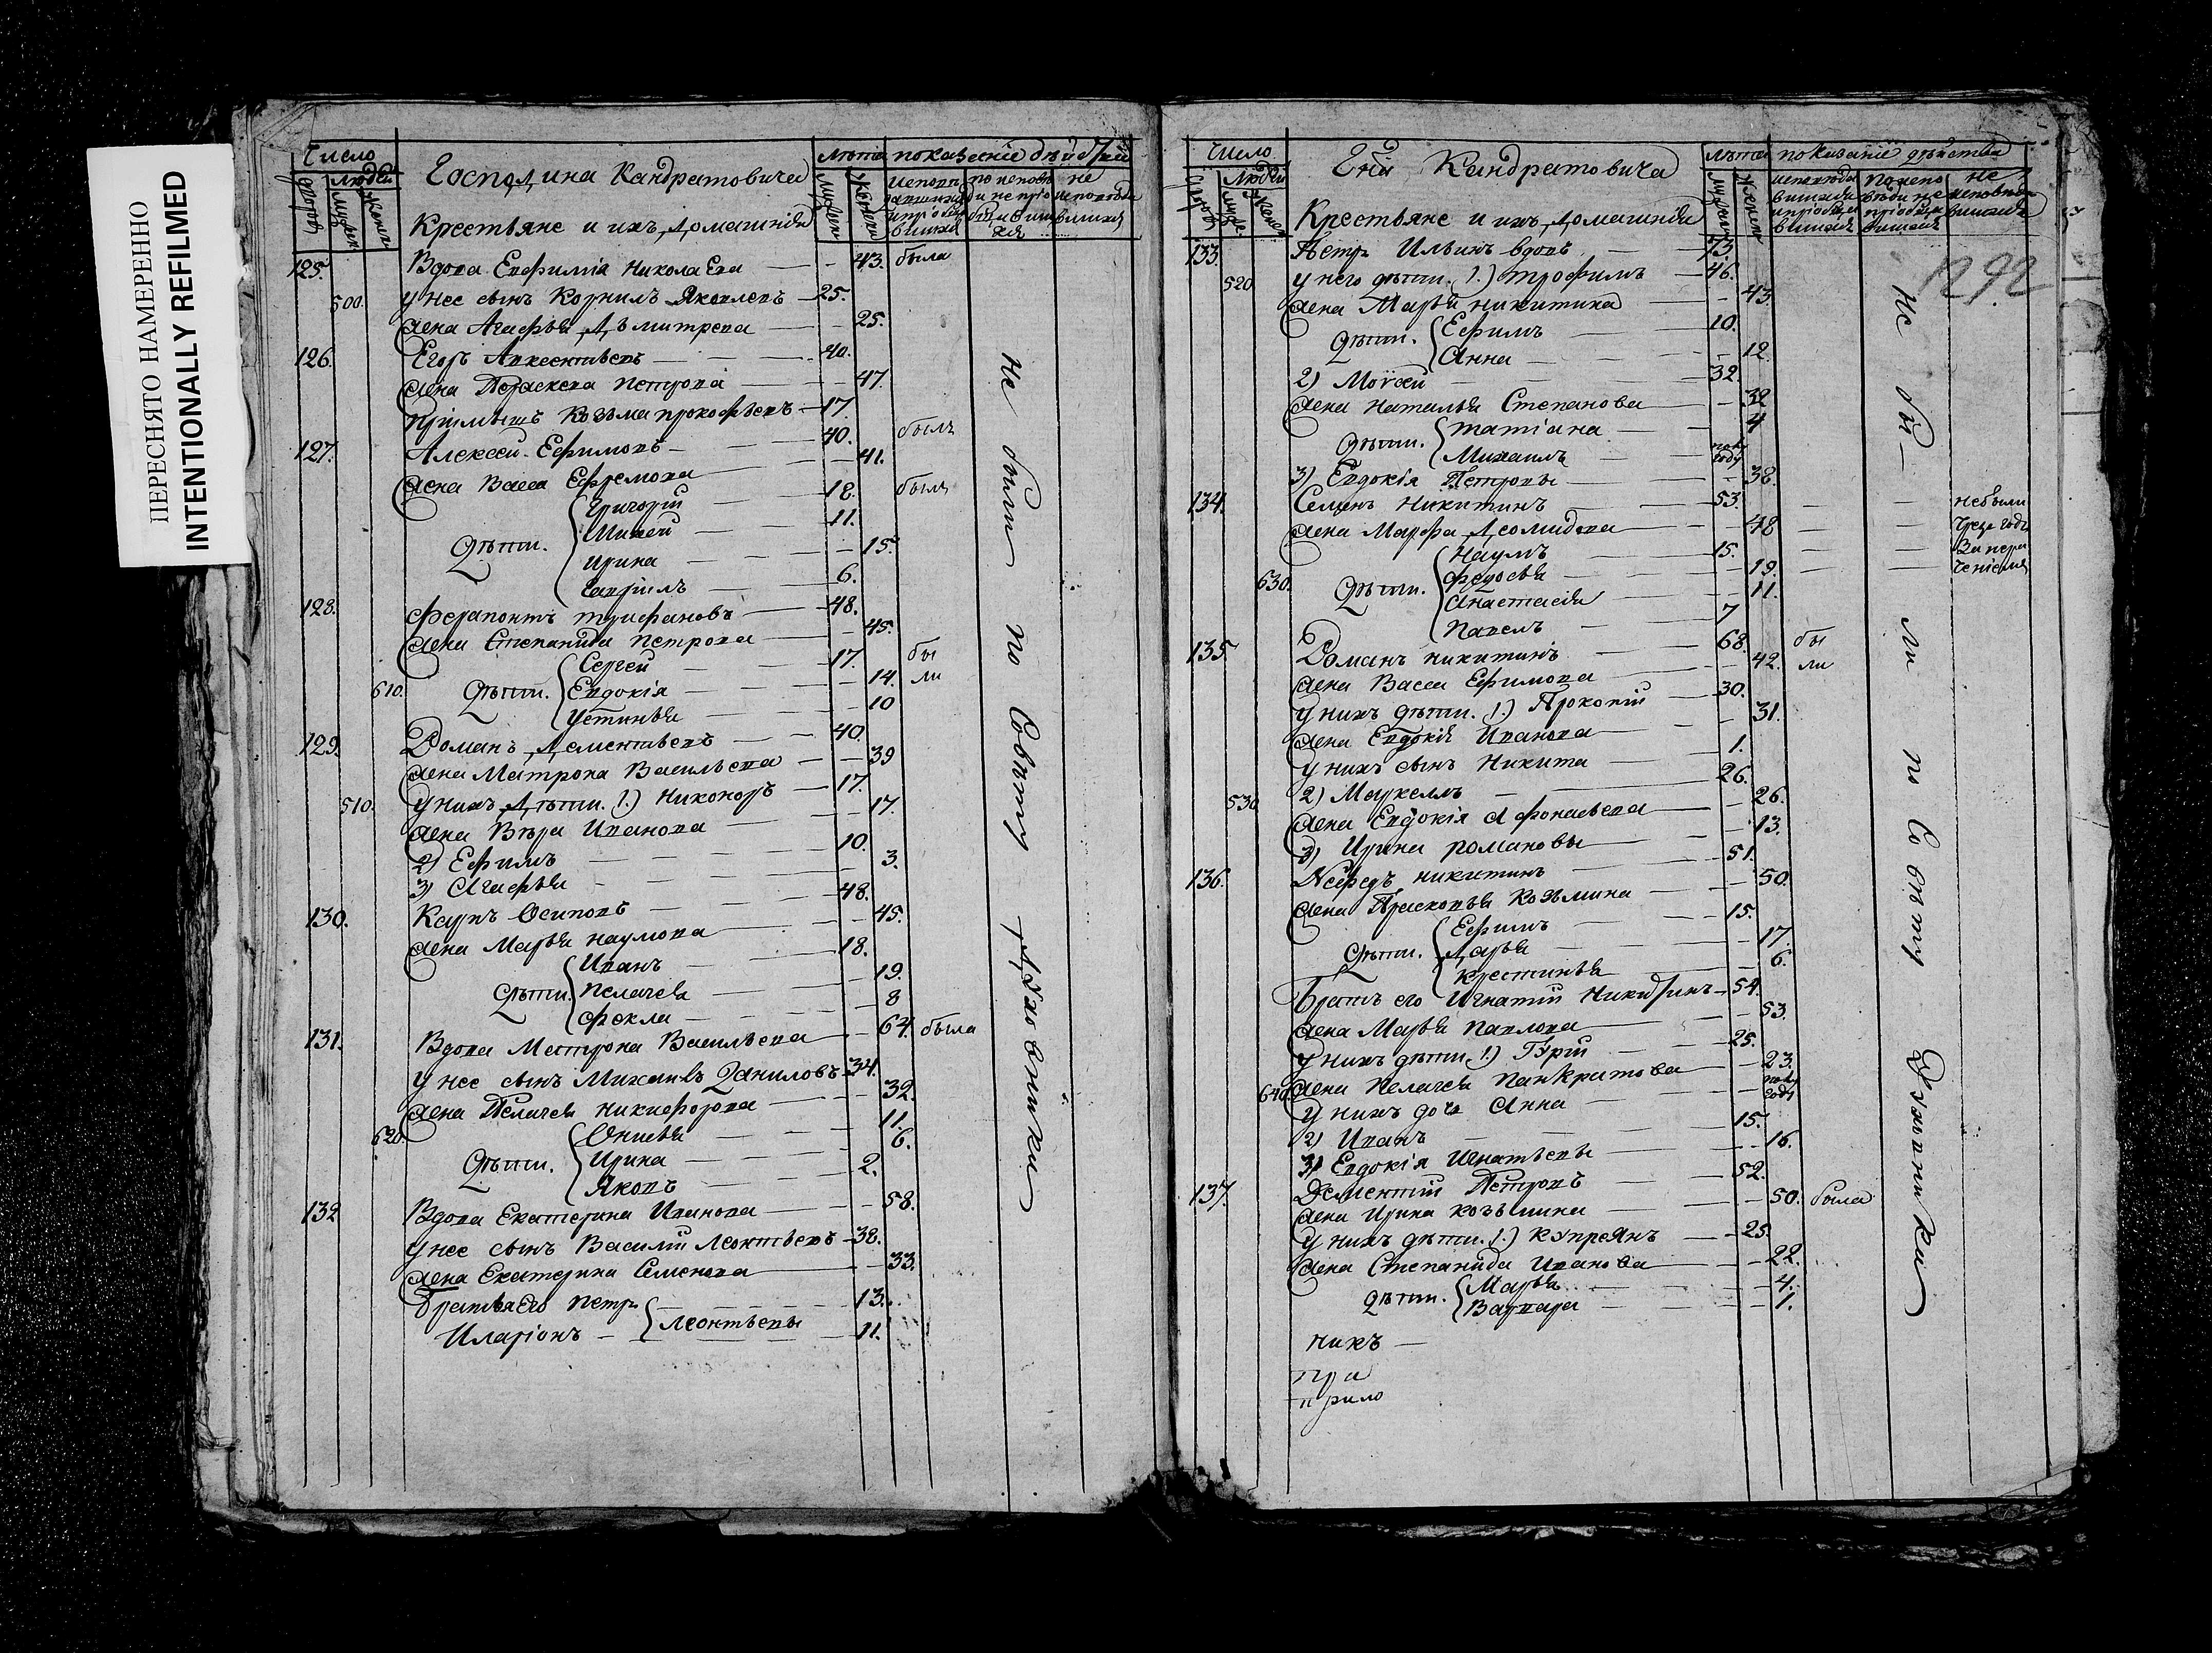 ПЕРЕСНЯТО НАМЕРЕННО
INTENTIONALLY REFILMED
Число
Людей
Господина Кандратовича
Крестьяне и ихъ домашнія
Лѣта
показаніе дѣйствій
125. Вдова Евфимія Николаева — 43. была
500. у нее сынъ Корнилъ Яковлевъ — 25.
жена Агафья Дъмитрева — 25.
126. Егоръ Авксентьевъ — 40.
жена Параскева Петрова — 47.
Пріимышъ Козьма Прокофьевъ — 17.
127. Алексей Ефимовъ — 40. былъ
жена Васса Ефремова — 41.
Григорій — 18. былъ
дѣти. Михей — 11.
Ирина — 15.
Гавріилъ — 6.
128. Ферапонтъ Трифановъ — 48.
жена Степанида Петрова — 45.
Сергей — 17. бы
610. дѣти. Евдокія — 14. ли
Устинья — 10
129. Романъ Дементьевъ — 40.
жена Матрона Васильева — 39
510. у нихъ дѣти. 1.) Никоноръ — 17.
жена Вѣра Иванова — 17.
2) Ефимъ — 10.
3) Агафья — 3.
130. Карпъ Осиповъ — 48.
жена Марья Наумова — 45.
Иванъ — 18.
дѣти. Пелагея — 19.
Фекла — 8
131. Вдова Матрона Васильева — 64. была
у нее сынъ Михаилъ Даниловъ — 34.
жена Пелагея Никифорова — 32.
620. Онисья — 11.
дѣти. Ирина — 6.
Яковъ — 2.
132 Вдова Екатерина Иванова — 58.
у нее сынъ Василій Леонтьевъ — 38.
жена Екатерина Семенова — 33.
Братья его Петръ — 13.
Леонтьевы
Иларіонъ — 11.
не были по Совѣту Духовника
Число
Людей
Кандратовича
Крестьяне и ихъ домашнія
Лѣта
показаніе дѣйства
1292
133. Петръ Ильинъ вдовъ — 73.
520 у него дѣти. 1.) Трофимъ — 46.
жена Марья Никитина — 43.
дѣти. Ефимъ — 10.
Анна — 12.
2) Моѵсей — 32.
жена Наталья Степанова — 32
дѣти. Татіана — 4
Михаилъ — полъ году
3) Евдокія Петровы — 38.
134. Семенъ Никитинъ — 53. небыли
жена Марфа Деомидова — 48
Наумъ — 15.
630. дѣти. Федосья — 19.
Анастасія — 11.
Павелъ — 7
135. Романъ Никитинъ — 68. бы
жена Васса Ефимова — 42. ли
у нихъ дѣти. 1.) Прокопій — 30.
жена Евдокія Иванова — 31.
у нихъ сынъ Никита — 1.
2) Маркелъ — 26.
530 жена Евдокія Афонасьева — 26.
3) Ирина Романовы — 13.
136. Никитинъ — 51.
жена Прасковья Козьмина — 50.
Ефимъ — 15.
дѣти. Дарья — 17.
Крестинья — 6.
Братъ его Игнатій Никитинъ — 54.
жена Марья Павлова — 53.
у нихъ дѣти 1.) Гурій — 25.
640 жена Пелагея Панкратова — 23.
у нихъ дочь Анна — полъ году
2) Иванъ — 15.
3) Евдокія Игнатьевы — 16.
137. Дементій Петровъ — 52.
жена Ирина Козьмина — 50. была
у нихъ дѣти. 1.) Купреянъ — 25.
жена Степанида Иванова — 22.
дѣти. Марья — 4.
Варвара — 1.
никъ —
при
прило
не бы— ли по Совѣту Духовника